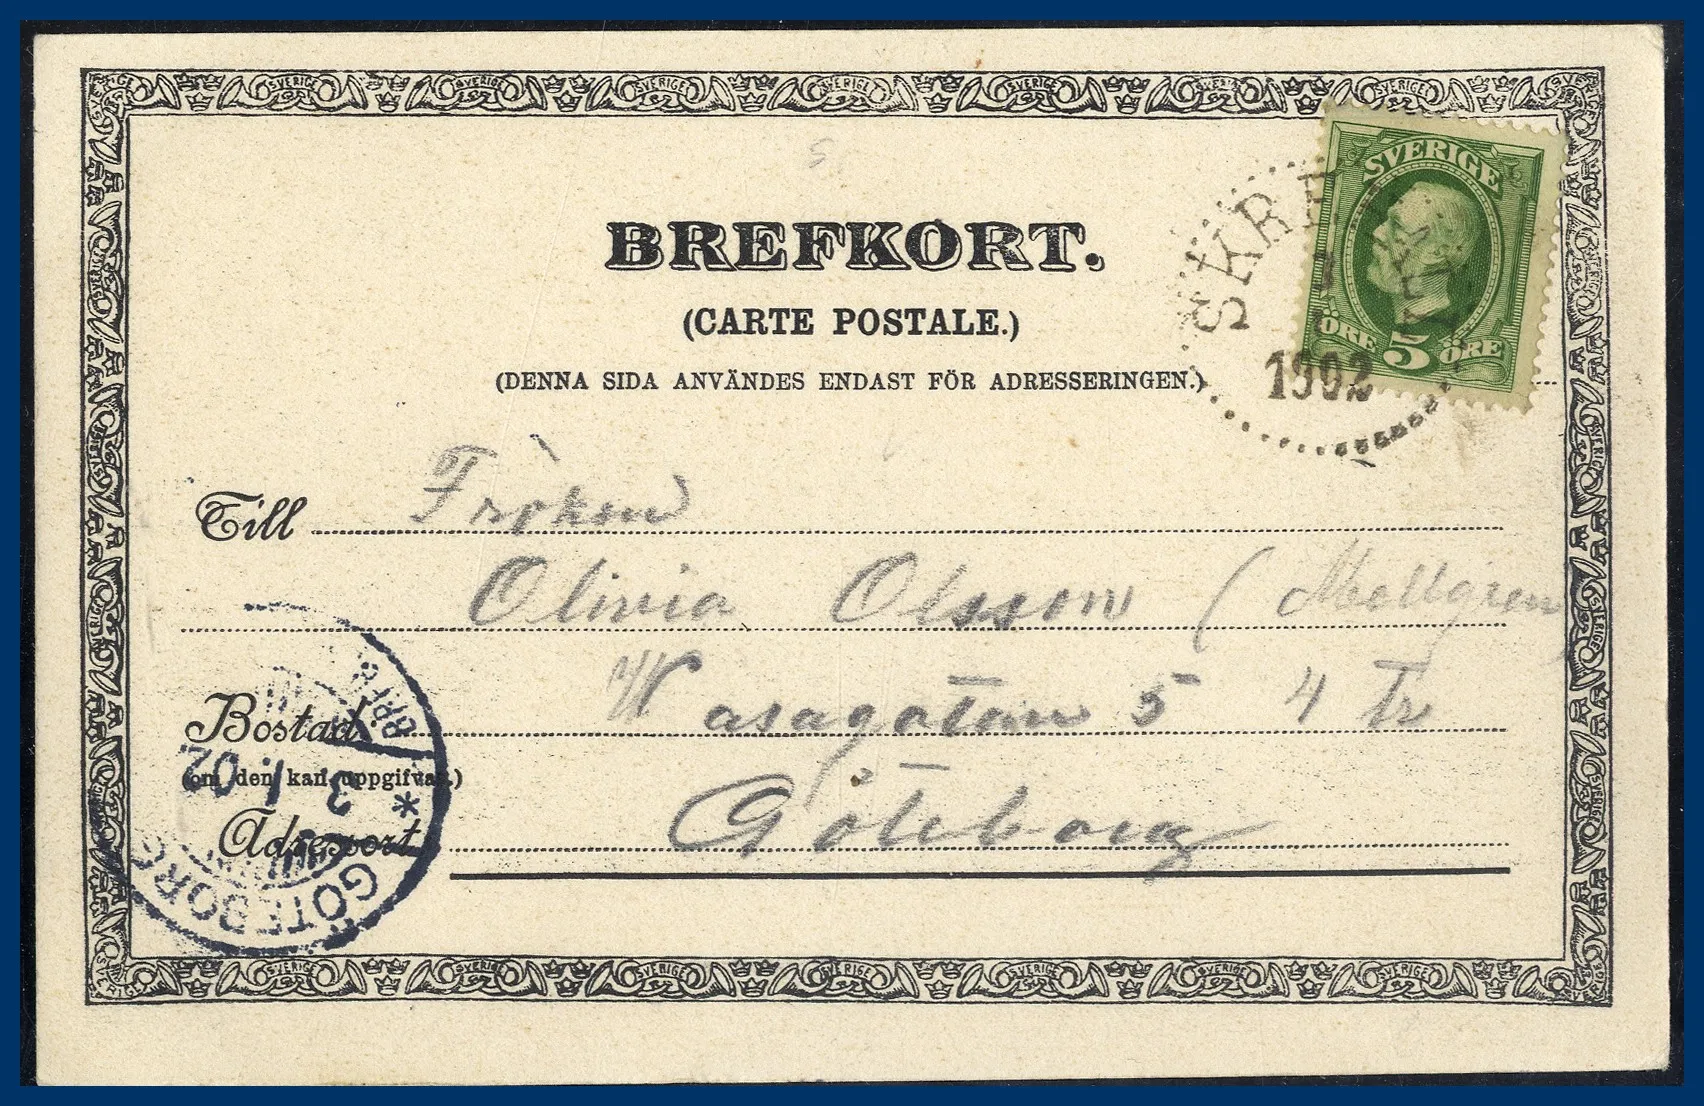 BREFKORT.
(CARTE POSTALE.)
(DENNA SIDA ANVÄNDES ENDAST FÖR ADRESSERINGEN.)
SVERIGE
ÖRE 5 ÖRE
1902
Till Fröken
Olivia Olsson (Mellgren
Bostad Wasagatan 5 4 Tr
(om den kan uppgifvas.)
Adressort Göteborg
GÖTEBORG
3 1 02